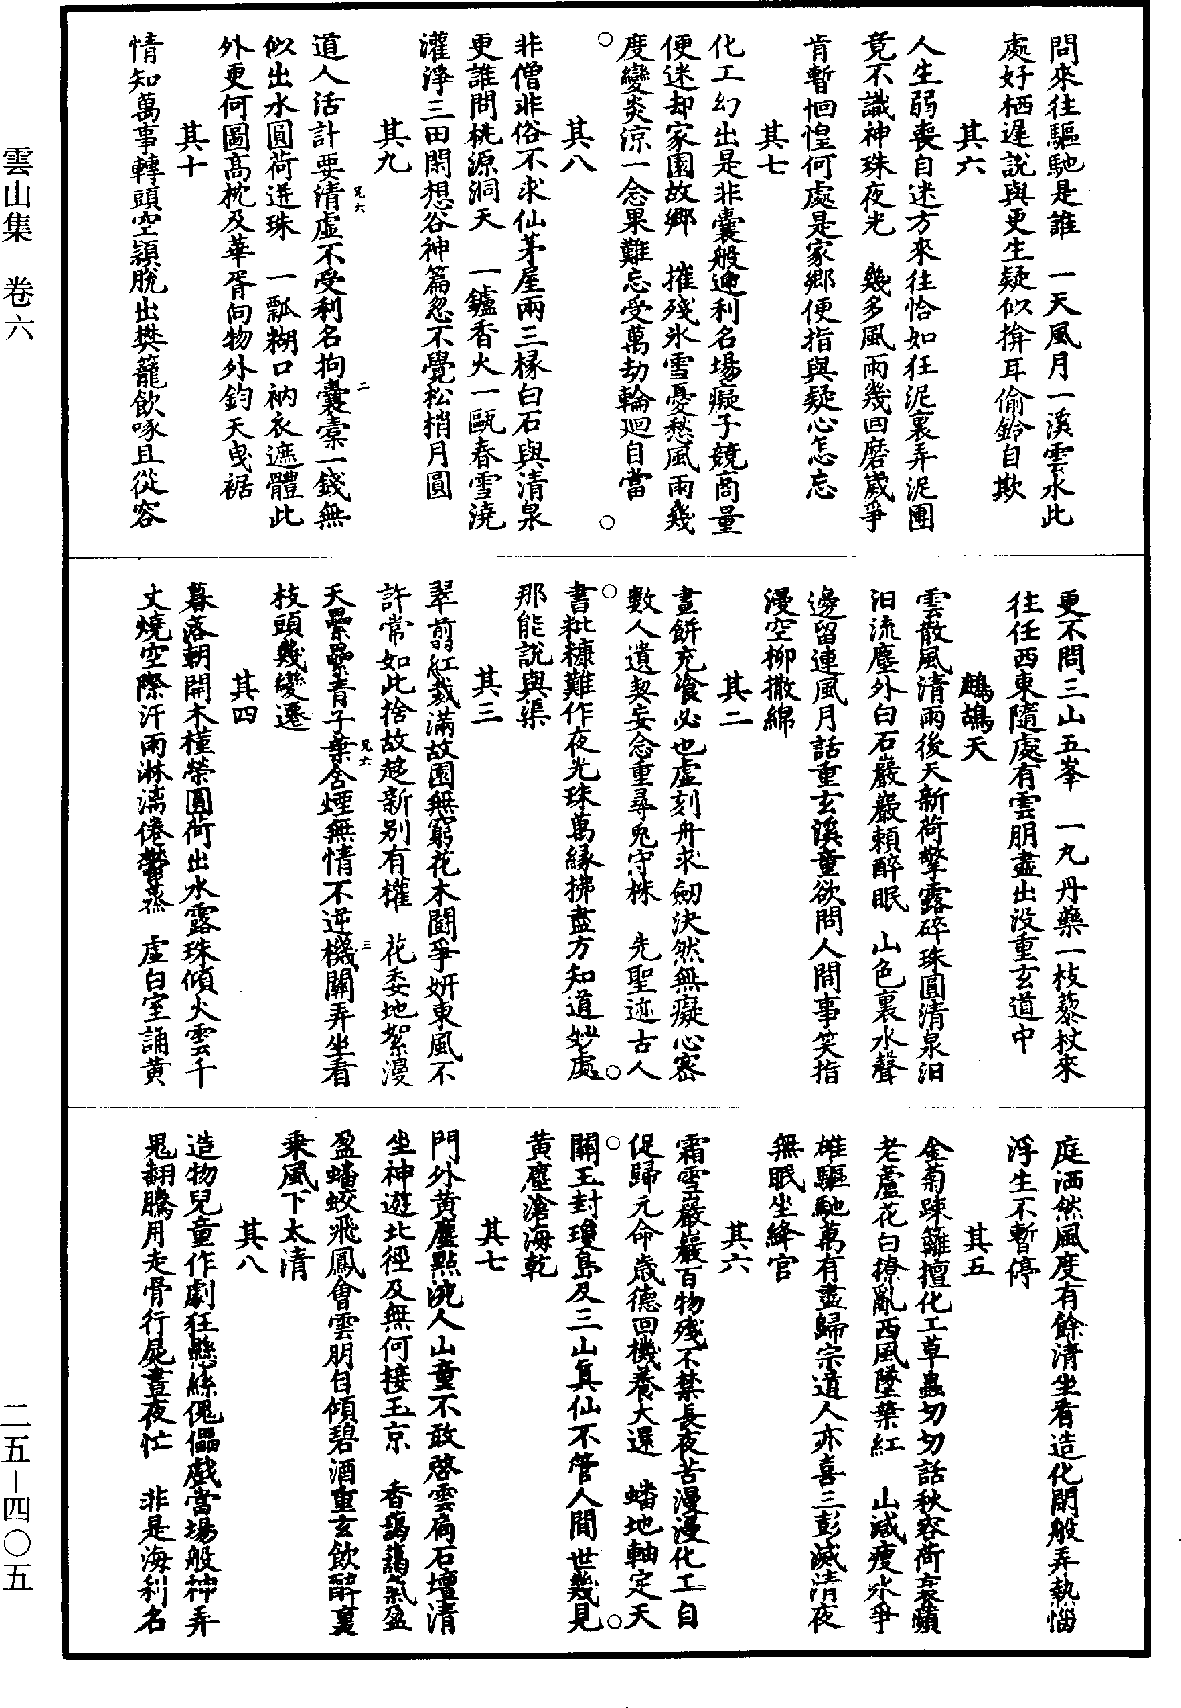 問來往驅馳是誰　一天風月一溪雲水此
處好栖遲說與更生疑似揜耳偷鈴自欺
其六
人生弱喪自迷方來往恰如狂泥裏弄泥團
竟不識神珠夜光　幾多風雨幾回磨歲爭
肯暫恛惶何處是家鄉便指與疑心怎忘
其七
化工幻出是非囊般運利名場癡子競商量
便迷却家園故鄉　摧殘氷雪憂愁風雨幾
度變炎涼一念果難忘受萬劫輪廻自當
其八
非僧非俗不求仙茅屋兩三椽白石與清泉
更誰問桃源洞天　一鑪香火一甌春雪澆
灌淨三田閑想谷神篇忽不覺松梢月圓
其九
道人活計要清虛不受利名拘囊橐一錢無
似出水圓荷迸珠　一瓢糊口衲衣遮體此
外更何圖高枕及華胥向物外鈞天曳裾
其十
情知萬事轉頭空頴脫出樊籠飲啄且從容
更不問三山五峯　一九丹藥一枝藜杖來
往任西東隨處有雲朋盡出没重玄道中
鷓鴣天
雲散風清雨後天新荷擎露碎珠圓清泉汩
汩流塵外白石巖巖頼醉眠　山色裏水聲
邊留連風月話重玄溪童欲問人間事笑指
漫空柳撒綿
其二
畫餅充飡必也虛刻舟求劒決然無癡心密
數人遺契妄念重尋兔守株　先聖迹古人
書粃糠難作夜光珠萬緣拂盡方知道妙處
那能說與渠
其三
翠剪紅裁滿故園無窮花木鬪爭妍東風不
許常如此捨故趍新别有權　花委地絮漫
天纍纍青子葉含煙無情不逆機關弄坐看
枝頭幾變遷
其四
暮落朝開木槿榮圓荷出水露珠傾火雲千
丈燒空際汗雨淋漓倦鬱蒸　虛白室誦黃
庭洒然風度有餘清坐看造化閑般弄執惱
浮生不暫停
其五
金菊踈籬擅化工草蟲切切話秋容荷衰蘋
老蘆花白撩亂西風墜葉紅　山減瘦水爭
雄驅馳萬有盡歸宗道人亦喜三彭滅清夜
無眠坐絳宫
其六
霜雪巖巖百物殘不禁長夜苦漫漫化工自
促歸元命歲德回機養大還　蟠地軸定天
關玉封瓊島及三山真仙不管人間世幾見
黃塵滄海乾
其七
門外黃塵點涴人山童不敢啓雲扃石壇清
坐神遊北徑及無何接玉京　香藹藹氣盈
盈蟠蛟飛鳳會雲朋自傾碧酒重玄飲醉裏
乘風下太清
其八
造物兒童作劇狂懸絲傀儡戲當場般神弄
鬼翻騰用走骨行屍晝夜忙　非是海利名
雲山集　卷六
二五—四〇五